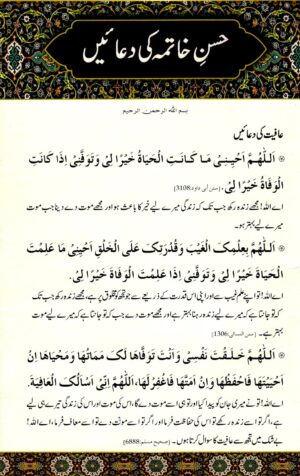 حسنِ خاتمہ کی دعائیں
بسم اللہ الرحمن الرحیم
عافیت کی دعائیں
اَللّٰهُمَّ اَحْيِنِيْ مَا كَانَتِ الْحَيَاةُ خَيْرًا لِيْ وَتَوَفَّنِيْ اِذَا كَانَتِ
الْوَفَاةُ خَيْرًا لِيْ. [سنن أبي داود:3108]
اے اللہ! مجھے زندہ رکھ جب تک کہ زندگی میرے لیے خیر کا باعث ہو اور مجھے موت دے دینا جب موت
میرے لیے بہتر ہو۔
اَللّٰهُمَّ بِعِلْمِكَ الْغَيْبَ وَقُدْرَتِكَ عَلَى الْخَلْقِ اَحْيِنِيْ مَا عَلِمْتَ
الْحَيَاةَ خَيْرًا لِيْ وَتَوَفَّنِيْ اِذَا عَلِمْتَ الْوَفَاةَ خَيْرًا لِيْ.
اے اللہ! تو اپنے علم غیب سے اور اپنی اس قدرت کے ذریعے سے جو تجھ کو مخلوق پر ہے، مجھے زندہ رکھ جب تک
کہ تو جانتا ہے کہ میرے لیے زندہ رہنا بہتر ہے اور مجھے موت دے جب کہ تو جانتا ہے کہ میرے لیے موت
بہتر ہے۔ [سنن النسائی:1306]
اَللّٰهُمَّ خَلَقْتَ نَفْسِيْ وَاَنْتَ تَوَفَّاهَا لَكَ مَمَاتُهَا وَمَحْيَاهَا اِنْ
اَحْيَيْتَهَا فَاحْفَظْهَا وَاِنْ اَمَتَّهَا فَاغْفِرْلَهَا، اَللّٰهُمَّ اِنِّيْ اَسْاَلُكَ الْعَافِيَةَ.
اے اللہ! تو نے میری جان کو پیدا کیا اور تو ہی اسے موت دے گا، اس کی موت اور اس کی زندگی تیرے ہی لیے
ہے، اگر تو اسے زندہ رکھے تو اس کی حفاظت فرما اور اگر تو اسے موت دے تو اسے معاف فرما، اے اللہ!
بے شک میں تجھ سے عافیت کا سوال کرتا ہوں۔ [صحیح مسلم:6888]